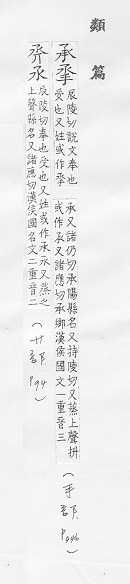 類篇
承 㧼 辰陵切說文奉也受也又姓或作㧼
承又諸仍切承陽縣名又詩陵切又蒸上聲拼
或作承又諸應切承鄉漢侯國 文一重音三
(手部 P446)
丞 辰陵切奉也受也又姓或作承承又蒸之
上聲縣名又諸應切漢侯國名文二重音二
(廾部 P94)